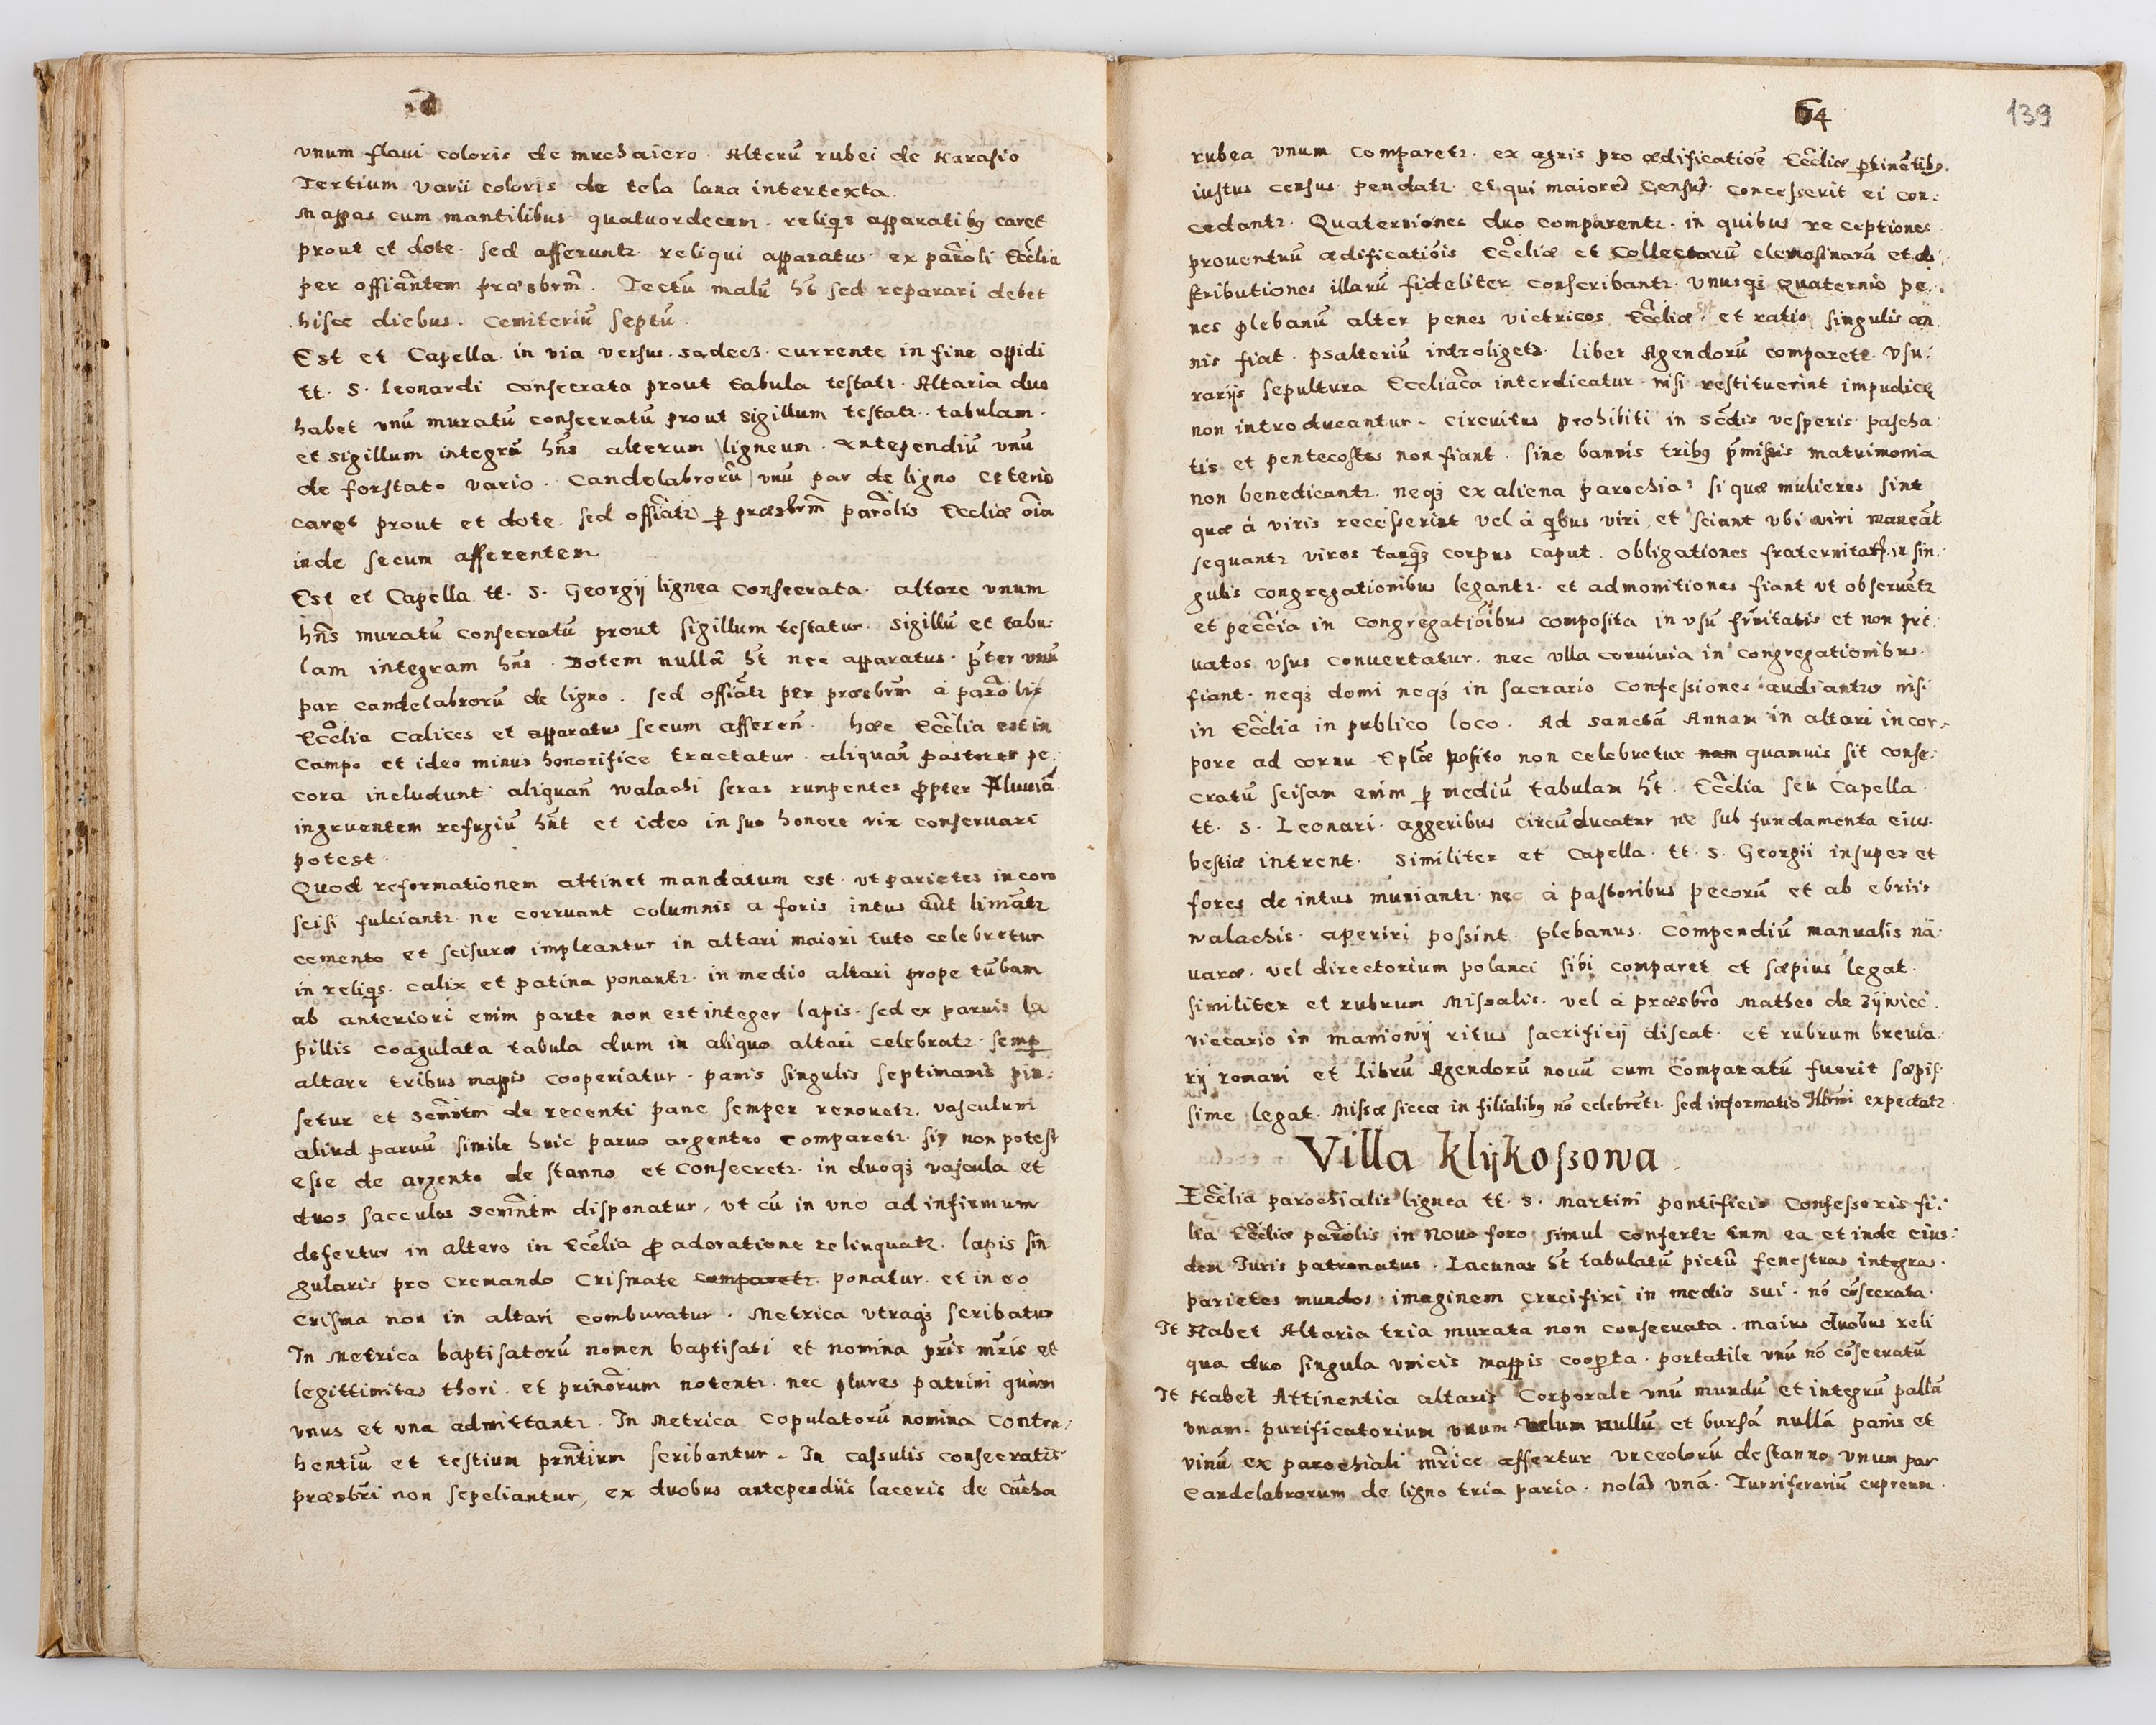 vnum flaui coloris de muchaiero. Alterũ rubei de Harasio
Tertium varii coloris de tela lana intertexta.
Mappas cum mantilibus quatuordecem. reliqs apparatibꝰ caret
prout et dote. sed afferuntr reliqui apparatus ex parõli Eccłia
per offiãntem præsbrm̃. Tectũ malũ ht̃ sed reparari debet
hisce diebus. Cemiteriũ septũ.
Est et Capella in via versus Sadecz currente in fine oppidi
tt. S. Leonardi consecrata prout tabula testatr. Altaria duo
habet vnũ muratũ consecratũ prout sigillum testatr. tabulam
et sigillum integrũ hñs alterum ligneum. Antependiũ vnũ
de forstato vario. Candelabrorũ vnũ par de ligno Ceteris
caret prout et dote. sed offiãtr ꝑ præsbrm̃ parõlis Eccliæ oĩa
inde secum afferentem
Est et Capella tt. S. Georgij lignea consecrata. altare vnum
hñs muratũ consecratũ prout sigillum testatur. Sigillũ et tabu:
lam integram hñs. Dotem nullã ht̃ nec apparatus. p̃ter vnũ
par candelabrorũ de ligno. sed offiãtr per præsbrm̃ à parõlis
Eccłia Calices et apparatus secum afferen̄. hæc Eccłia est in
Campo et ideo minus honorifice tractatur. aliquan̄ pastores pe:
cora includunt aliquan̄ walachi seras rumpentes ꝓpter pluuiã
ingruentem refugiũ hñt et ideo in suo honore vix conseruari
potest.
Quod reformationem attinet mandatum est. vt parietes in coro
scisi fulciantr ne corruant columnis a foris intus aũt limãtr
cemento et scisuræ impleantur in altari maiori tuto celebretur
in reliqs. calix et patina ponantr. in medio altari prope tũbam
ab anteriori enim parte non est integer lapis. sed ex paruis la
pillis coagulata tabula dum in aliquo altari celebratr. semꝑ
altare tribus mappis cooperiatur. panis singulis septimanis pin:
setur et Scm̃ntm de recenti pane semper renouetr. vasculum
aliud paruũ simile huic paruo argenteo comparetr. si non potest
esse de argento de stanno et consecretr. in duoqȝ vascula et
duos sacculos scm̃ntm disponatur, vt cũ in vno ad infirmum
defertur in altero in Eccłia ꝓ adoratione relinquatr. lapis sin
gularis pro cremando Crismate comparetr. ponatur. et in eo
Crisma non in altari comburatur. Metrica vtraqȝ scribatur
In Metrica baptisatorũ nomen baptisati et nomina pr̃is mr̃is et
legittimitas thori. et prinõrum notentr. nec plures patrini quàm
vnus et vna admittantr. In Metrica Copulatorũ nomina Contra/
hentiũ et testium prñtium scribantur. In cassulis consecratis
præsbr̃i non sepeliantur, ex duobus antependiis laceris de Cãcha
64
139
rubea vnum comparetr. ex agris pro ædificatiõe Eccłiæ ꝑtinẽtibꝰ.
iustus census pendatr. et qui maiorẽ censũ concesserit ei con:
cedantr. Quaterniones duo comparentr. in quibus receptiones
prouentuũ ædificatiõis Eccłiæ et Collectarũ elemosinarũ et di:
stributiones illarũ fideliter conscribantr. vnusqȝ quaternio pe:
nes plebanũ alter penes victricos Eccłiæ et ratio singulis an
nis fiat. psalteriũ introligetr. liber Agendorũ comparetr. vsu:
rarijs sepultura Eccliaĉa interdicatur. nisi restituerint impudicę
non introducantur. circuitus prohibiti in Scd̃is vesperis pascha:
tis et pentecostes non fiant. sine bannis tribꝰ p̃missis matrimonia
non benedicantr. neqȝ ex aliena parochia: si quæ mulieres sint
quæ à viris recesserint vel à qbus viri, et sciant vbi viri maneãt
sequantr viros tanqȝ corpus caput. obligationes fraternitatꝭ in sin
gulis congregationibus legantr. et admonitiones fiant vt obseruẽtr
et pecc̃ia in congregatiõibus composita in vsũ frñitatis et non pri
uatos vsus conuertatur. nec vlla conuiuia in congregationibus
fiant. neqȝ domi neqȝ in sacrario confessiones audiantur nisi
in Eccłia in publico loco. Ad sanctã Annam in altari in cor:
pore ad cornu Eplæ posito non celebretur nam quamuis sit conse:
cratũ scisam enim ꝑ mediũ tabulam ht̃. Eccłia seu Capella
tt. S. Leonari. aggeribus circũducatur ne sub fundamenta eius
bestiæ intrent. Similiter et Capella tt. S. Georgii insuper et
fores de intus muniantr. nec à pastoribus pecorũ et ab ebriis
walachis aperiri possint. plebanus Compendiũ manualis nã:
uaræ. vel directorium polanci sibi comparet et sæpius legat.
similiter et rubrum Missalis. vel à præsbrõ Matheo de zijwicc
viecario in maniowij ritus sacrificij discat. et rubrum breuia:
rij romani et librũ Agendorũ nouũ cum comparatũ fuerit sæpis
sime legat. Missæ siccæ in filialibꝰ nõ celebrẽtr. sed informatio Illrmi expectatr.
Villa klijkoszowa
Eccłia parochialis lignea tt. S. Martini pontificis Confessoris fi:
lia Eccłiæ parõlis in Nouo foro simul confertr cum ea et inde eius:
dem Iuris patronatus. Lacunar ht̃ tabulatũ pictũ fenestras integras.
parietes mundos. imaginem crucifixi in medio sui. nõ cõsecrata.
It Habet Altaria tria murata non consecrata. maius duobus reli
qua duo singula vnicis mappis cooꝑta. portatile vnũ nõ cõsecratũ
It Habet Attinentia altaris Corporale vnũ mundũ et integrũ pallã
vnam. purificatorium vnum velum nullũ et bursã nullã panis et
vinũ ex parochiali mr̃ice affertur vrceolorũ de stanno vnum par
Candelabrorum de ligno tria paria. nolã vnã. Turriferariũ cupreum.